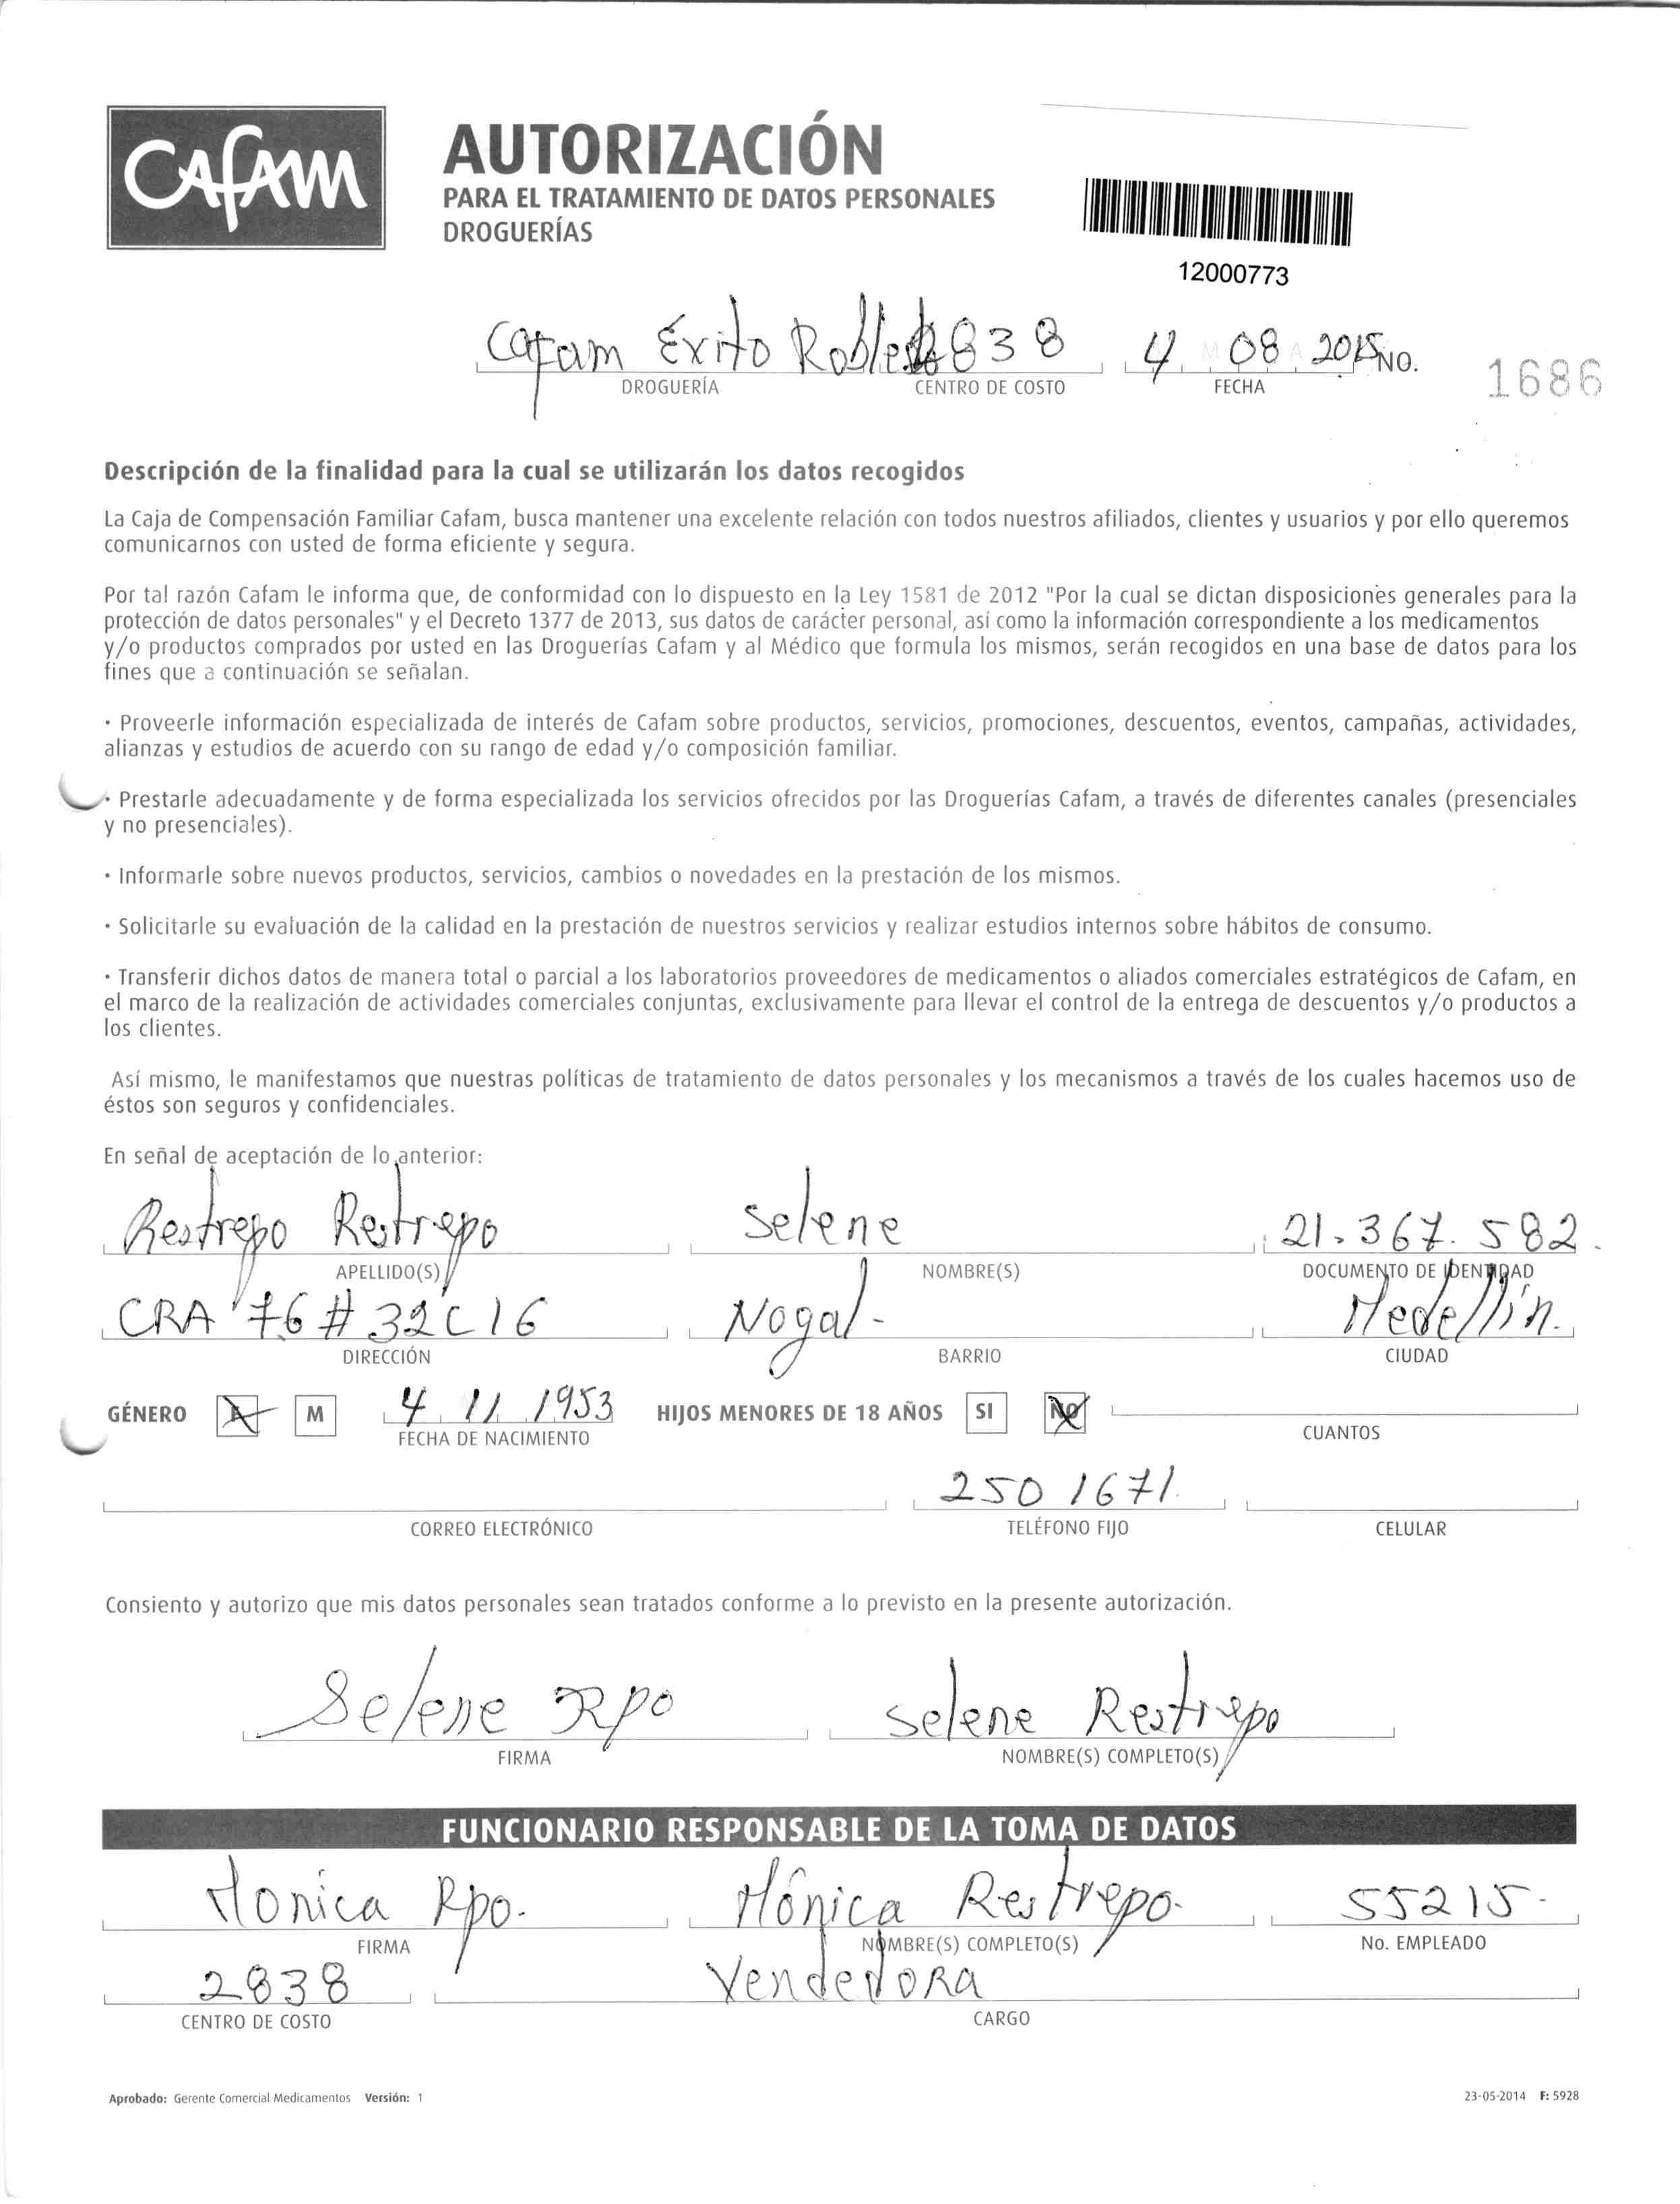 Cafam
AUTORIZACIÓN
PARA EL TRATAMIENTO DE DATOS PERSONALES
DROGUERÍAS
12000773
Cafam Éxito Robledo 2838 4 08 2015 NO. 1686
DROGUERÍA CENTRO DE COSTO FECHA
Descripción de la finalidad para la cual se utilizarán los datos recogidos
La Caja de Compensación Familiar Cafam, busca mantener una excelente relación con todos nuestros afiliados, clientes y usuarios y por ello queremos
comunicarnos con usted de forma eficiente y segura.
Por tal razón Cafam le informa que, de conformidad con lo dispuesto en la Ley 1581 de 2012 "Por la cual se dictan disposiciones generales para la
protección de datos personales" y el Decreto 1377 de 2013, sus datos de carácter personal, así como la información correspondiente a los medicamentos
y/o productos comprados por usted en las Droguerías Cafam y al Médico que formula los mismos, serán recogidos en una base de datos para los
fines que a continuación se señalan.
· Proveerle información especializada de interés de Cafam sobre productos, servicios, promociones, descuentos, eventos, campañas, actividades,
alianzas y estudios de acuerdo con su rango de edad y/o composición familiar.
· Prestarle adecuadamente y de forma especializada los servicios ofrecidos por las Droguerías Cafam, a través de diferentes canales (presenciales
y no presenciales).
· Informarle sobre nuevos productos, servicios, cambios o novedades en la prestación de los mismos.
· Solicitarle su evaluación de la calidad en la prestación de nuestros servicios y realizar estudios internos sobre hábitos de consumo.
· Transferir dichos datos de manera total o parcial a los laboratorios proveedores de medicamentos o aliados comerciales estratégicos de Cafam, en
el marco de la realización de actividades comerciales conjuntas, exclusivamente para llevar el control de la entrega de descuentos y/o productos a
los clientes.
Así mismo, le manifestamos que nuestras políticas de tratamiento de datos personales y los mecanismos a través de los cuales hacemos uso de
éstos son seguros y confidenciales.
En señal de aceptación de lo anterior:
Restrepo Restrepo Selene 21.367.582.
APELLIDO(S) NOMBRE(S) DOCUMENTO DE IDENTIDAD
CRA 76 # 32C 16 Nogal- Medellín.
DIRECCIÓN BARRIO CIUDAD
GÉNERO F M 4 11 1953 HIJOS MENORES DE 18 AÑOS SI NO
FECHA DE NACIMIENTO CUANTOS
250 1671
CORREO ELECTRÓNICO TELÉFONO FIJO CELULAR
Consiento y autorizo que mis datos personales sean tratados conforme a lo previsto en la presente autorización.
Selene Rpo Selene Restrepo
FIRMA NOMBRE(S) COMPLETO(S)
FUNCIONARIO RESPONSABLE DE LA TOMA DE DATOS
Monica Rpo. Mónica Restrepo. 55215-
FIRMA NOMBRE(S) COMPLETO(S) No. EMPLEADO
2838 Vendedora
CENTRO DE COSTO CARGO
Aprobado: Gerente Comercial Medicamentos Versión: 1 23-05-2014 F: 5928